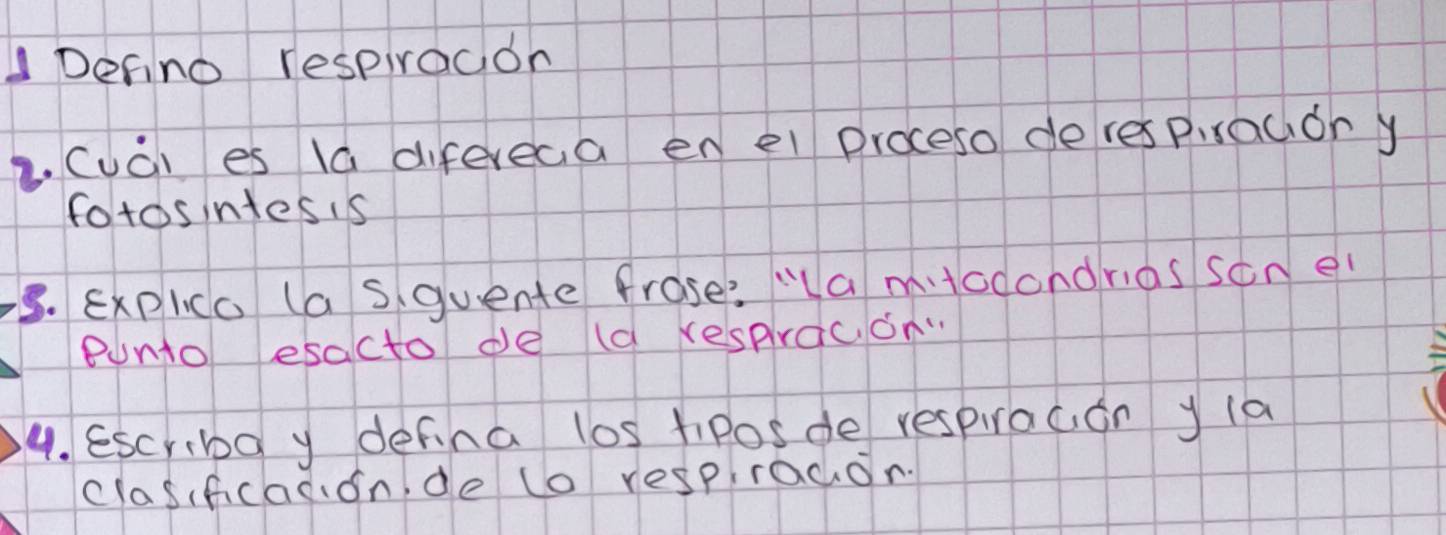 1 Defino respiración
2. Cuál es la diferecia en el proceso de respiración y
fotosintesis
3. Explico la siguente frase: "La mitocondrias son el
punto esacto de la respiración"
4. Escriba y defina los tipos de respiración y la
clasificación. de la respiración.